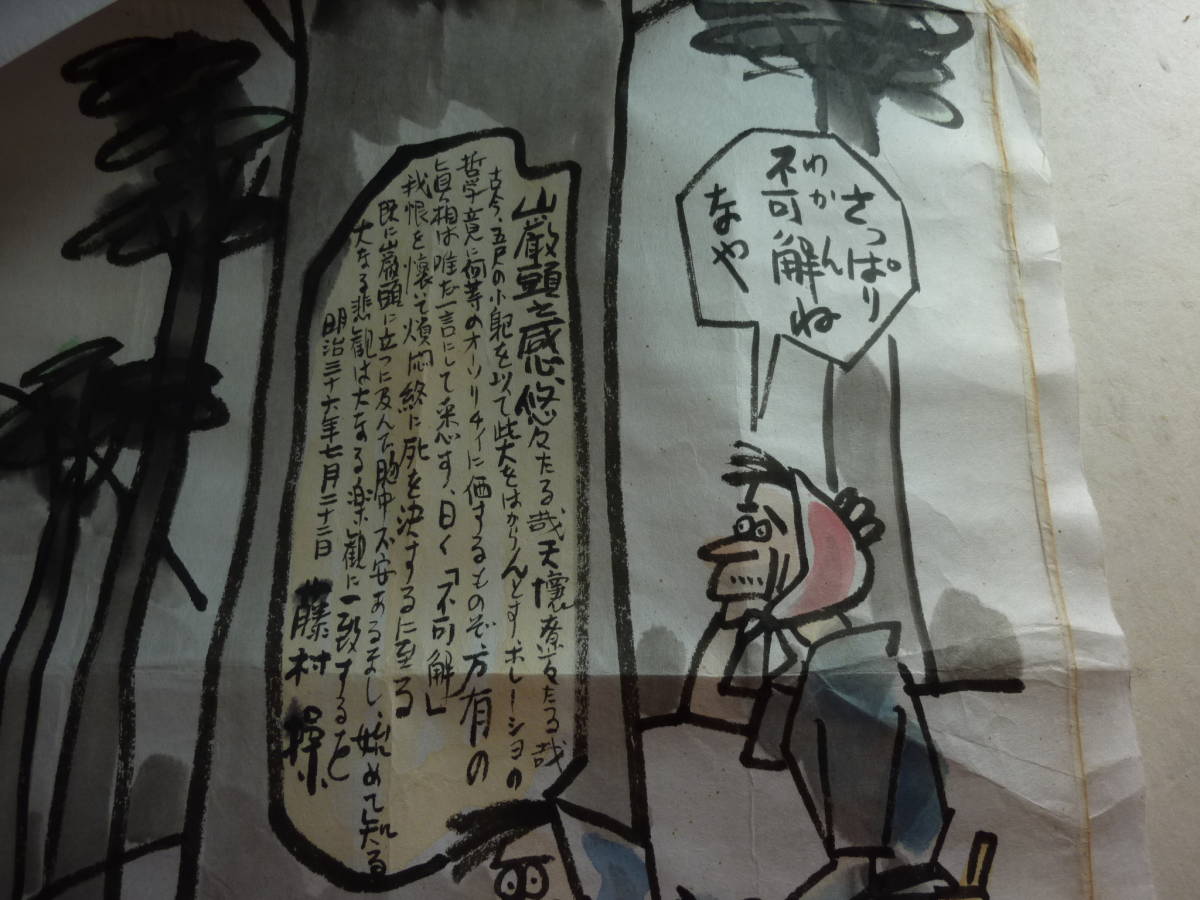 さっぱり
わかん
不可解ね
なや
巌頭之感、悠々たる哉天壤遼々たる哉
古今、五尺の小躯を以て此大をはからんとす、ホレーショの
哲学竟に何等のオーソリチィに価するものぞ、万有の
眞相は唯だ一言にして悉す、曰く「不可解」
我恨を懐いて煩悶終に死を決するに至る
既に巌頭に立つに及んで胸中不安あるまし、始めて知る
大なる悲観は大なる楽観に一致するを
明治三十六年七月二十二日 藤村 操